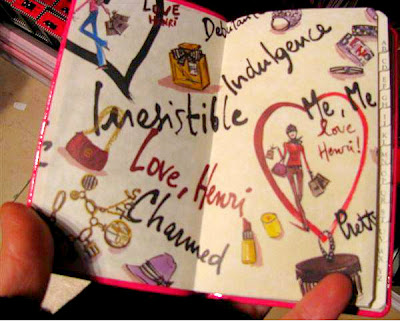 LOVE
HENRI
Irresistible
Love, Henri
Charmed
Debutant
Indulgence
Me, Me
love
Henri!
Pretty